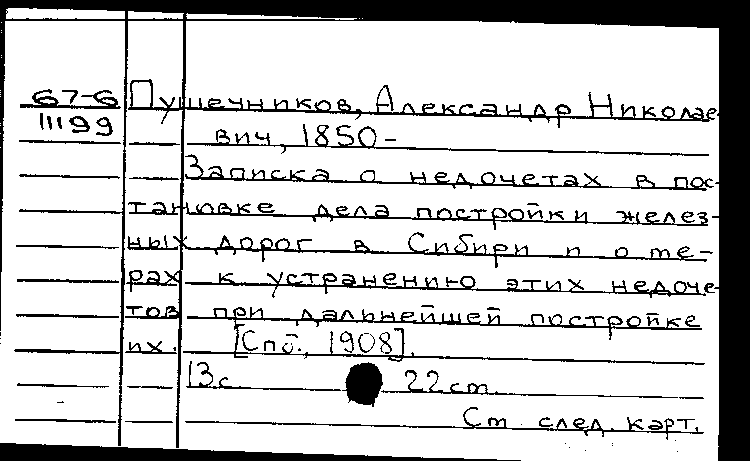 67-6 Пушечников, Александр Николае-
11199 вич, 1850-
Записка о недочетах в пос-
тановке дела постройки желез-
ных дорог в Сибири и о ме-
рах к устранению этих недоче-
тов при дальнейшей постройке
их. [Спб., 1908].
13с. 22 cm.
См след. карт.